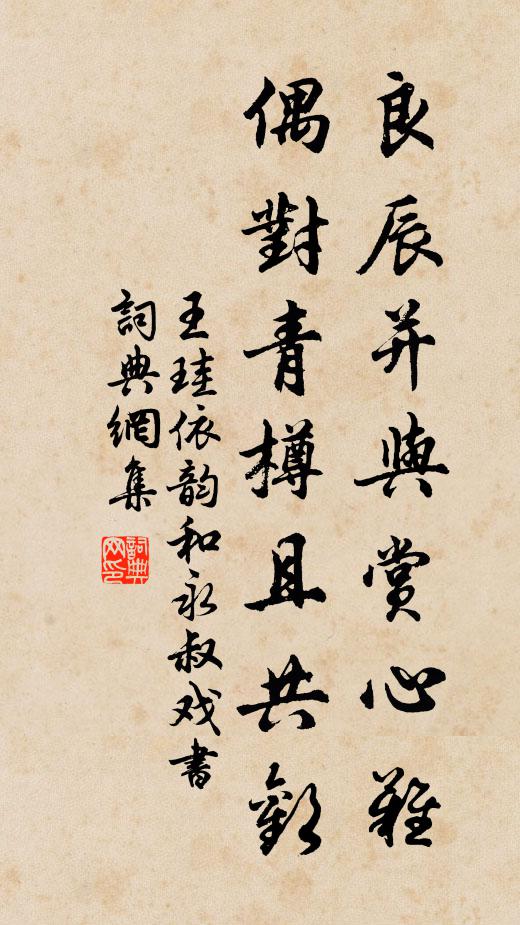 良辰并與賞心難
偶對青樽且共歡
王珪依韵和永叔戏書
詞典網集
詞典網印